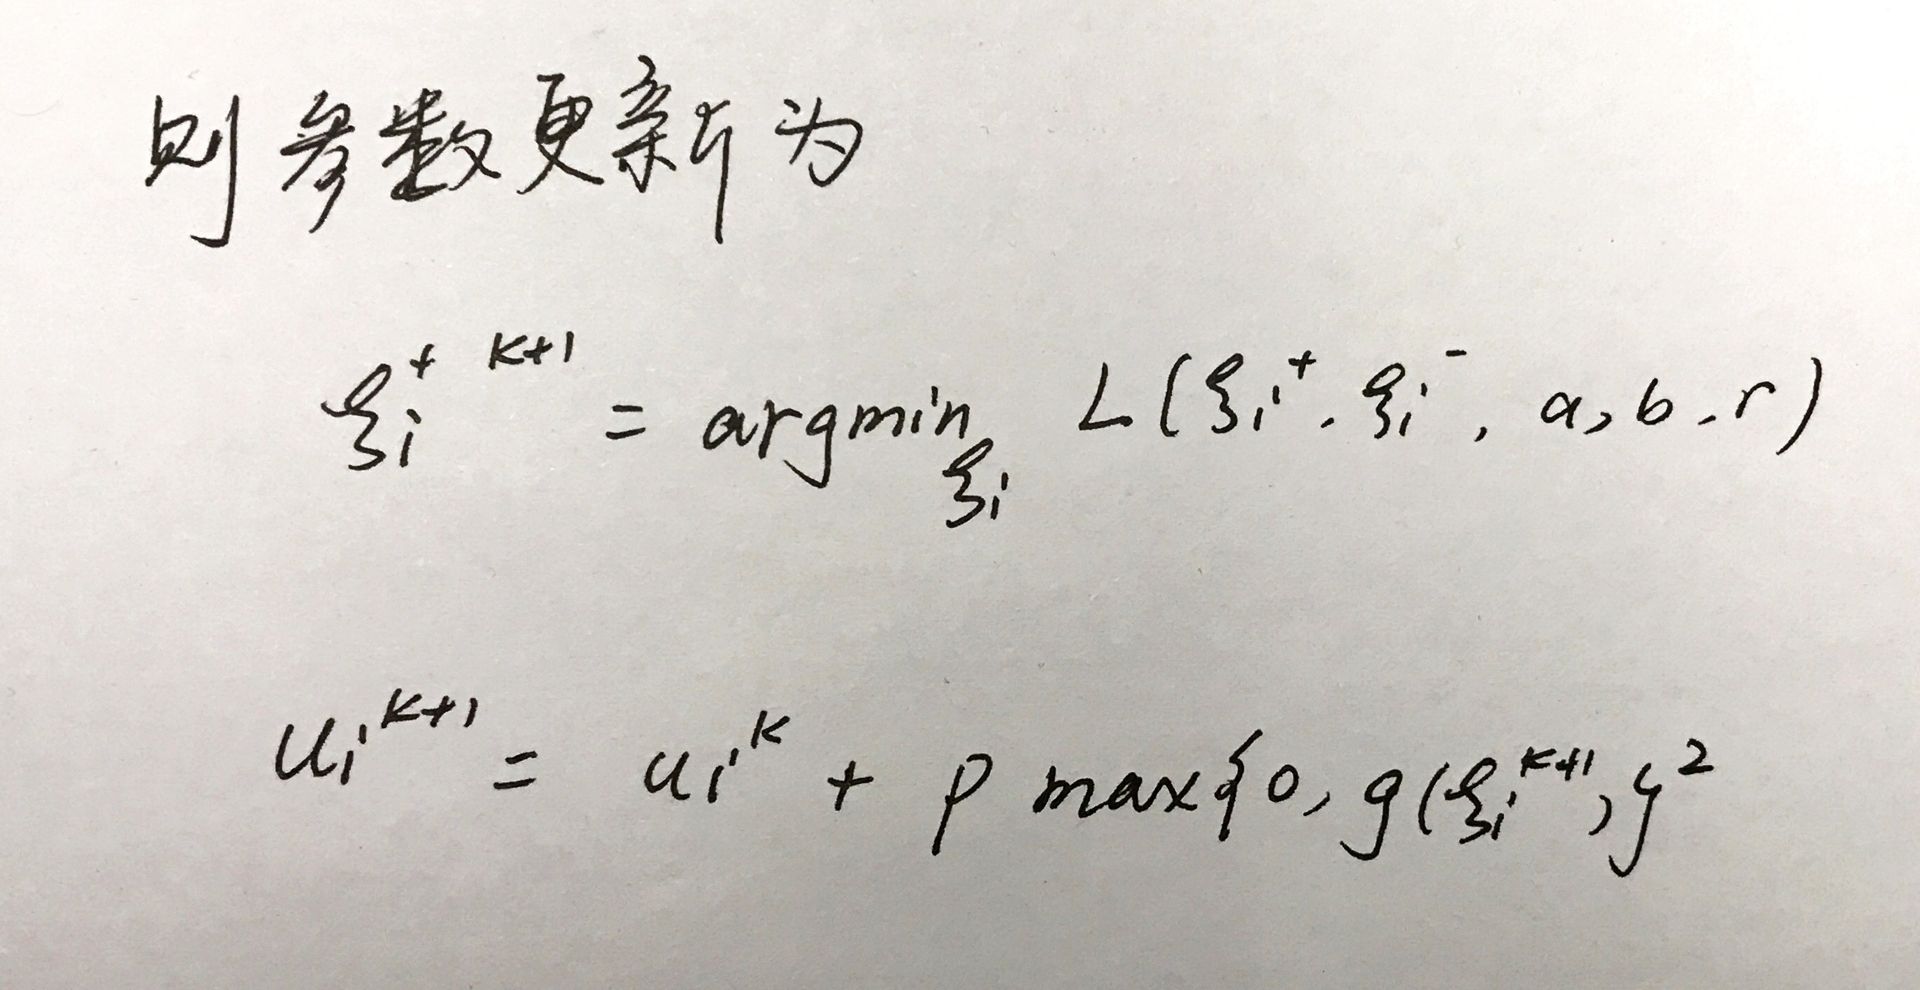 则参数更新为
ξᵢ⁺ ᵏ⁺¹ = argmin_ξᵢ L(ξᵢ⁺, ξᵢ⁻, a, b, r)
uᵢᵏ⁺¹ = uᵢᵏ + ρ max{0, g(ξᵢᵏ⁺¹)}²